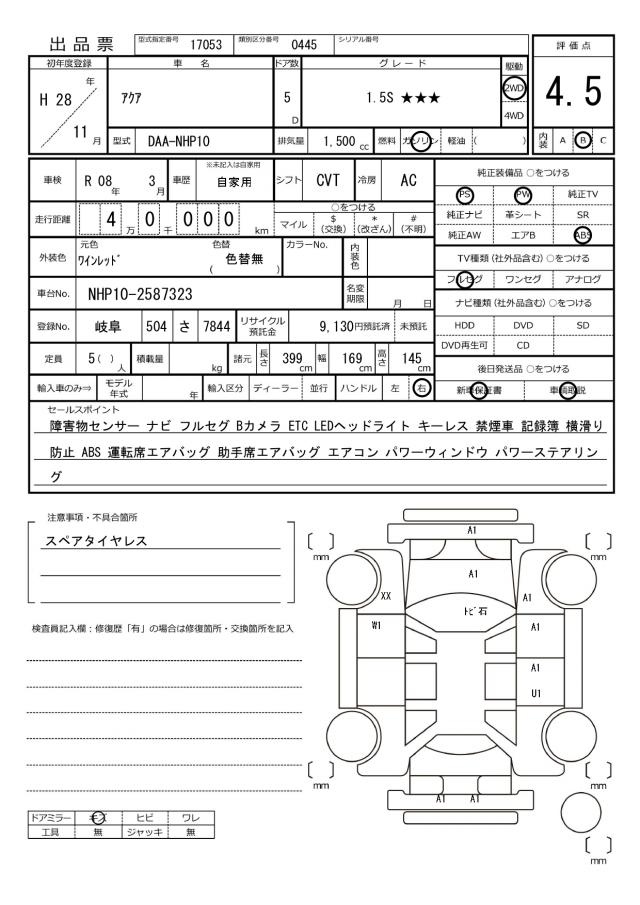 出品票
型式指定番号 17053 類別区分番号 0445 シリアル番号
初年度登録 車 名 ドア数 グレード 駆動 評価点
H 28 年 11 月
アクア 5 D 1.5S ★★★ 2WD 4WD 4.5
型式 DAA-NHP10 排気量 1,500 cc 燃料 ガソリン 軽油 ( ) 内装 A B C
車検 R 08 年 3 月 車歴 ※未記入は自家用 自家用 シフト CVT 冷房 AC
純正装備品 ○をつける
PS PW 純正TV
純正ナビ 革シート SR
純正AW エアB ABS
走行距離 4 万 0 千 0 0 0 km
○をつける
マイル $ (交換) * (改ざん) # (不明)
外装色 元色 ワインレッド 色替 ( 色替無 ) カラーNo. 内装色
TV種類 (社外品含む) ○をつける
フルセグ ワンセグ アナログ
車台No. NHP10-2587323 名変期限 月 日
ナビ種類 (社外品含む) ○をつける
HDD DVD SD
DVD再生可 CD
登録No. 岐阜 504 さ 7844 リサイクル預託金 9,130 円預託済 未預託
定員 5 ( ) 人 積載量 kg 諸元 長さ 399 cm 幅 169 cm 高さ 145 cm
後日発送品 ○をつける
新車保証書 車輌取説
輸入車のみ⇒ モデル年式 年 輸入区分 ディーラー 並行 ハンドル 左 右
セールスポイント
障害物センサー ナビ フルセグ Bカメラ ETC LEDヘッドライト キーレス 禁煙車 記録簿 横滑り
防止 ABS 運転席エアバッグ 助手席エアバッグ エアコン パワーウィンドウ パワーステアリン
グ
注意事項・不具合箇所
スペアタイヤレス
検査員記入欄：修復歴「有」の場合は修復箇所・交換箇所を記入
A1
mm mm
A1
XX A1
トビ石
W1 A1
A1
U1
mm mm
A1 A1
mm
ドアミラー キズ ヒビ ワレ
工具 無 ジャッキ 無